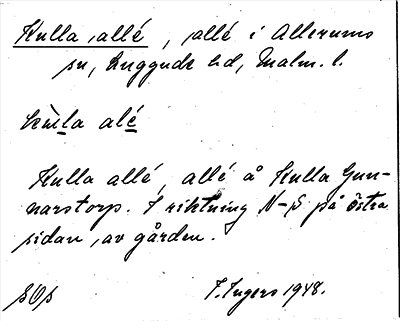 Kulla allé, allé i Allerums
sn, Luggude hd, Malm. l.
kùla alé
Kulla allé, allé å Kulla Gun-
narstorp. I riktning N-S på östra
sidan av gården.
I. Ingers 1948.